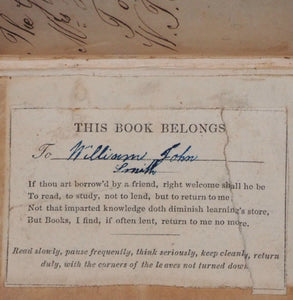 The
Mrs
To
W. T.
THIS BOOK BELONGS
To William John
Smith
If thou art borrow'd by a friend, right welcome shall he be
To read, to study, not to lend, but to return to me.
Not that imparted knowledge doth diminish learning's store,
But Books, I find, if often lent, return to me no more.
Read slowly, pause frequently, think seriously, keep cleanly, return
duly, with the corners of the leaves not turned down.